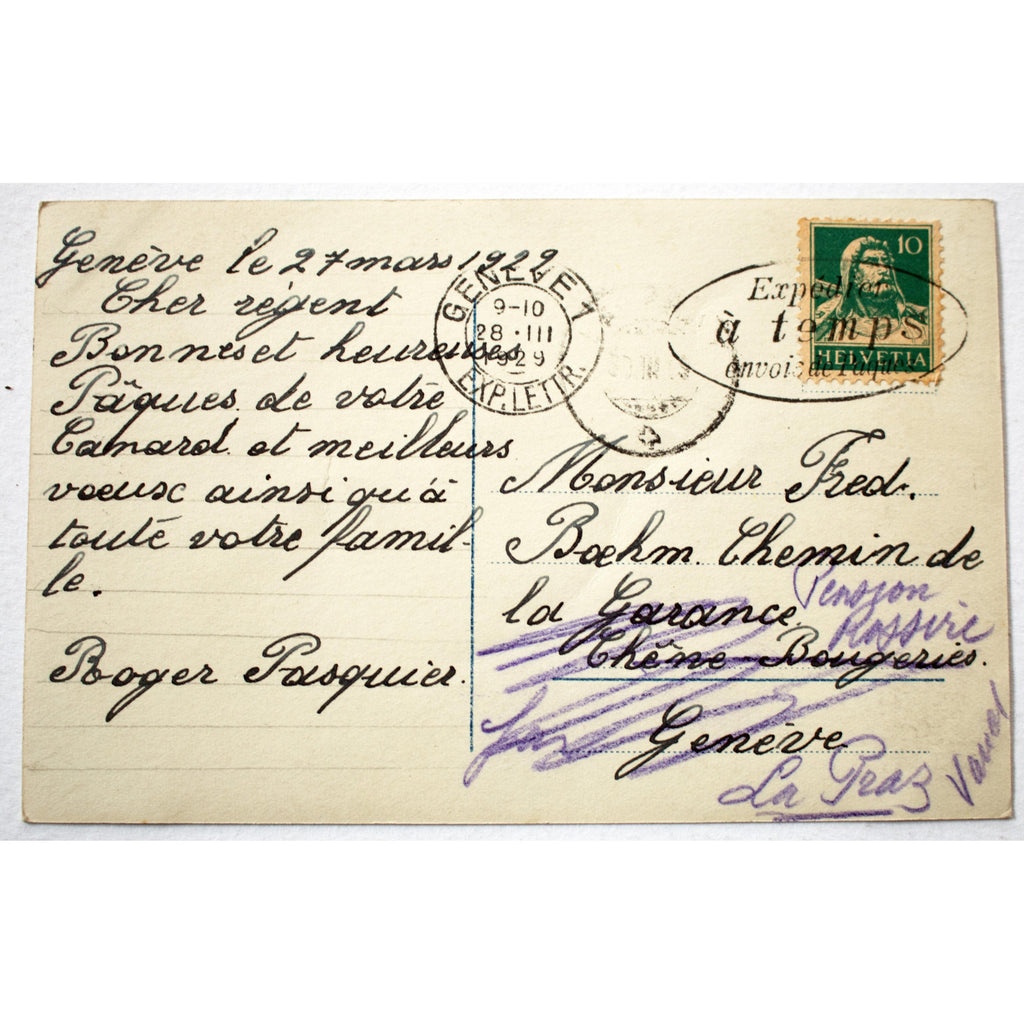 Genève le 27 mars 1929
Cher régent
Bonnes et heureuses
Pâques de votre
Canard et meilleurs
voeux ainsi qu'à
toute votre famil-
le.
Roger Pasquier.
GENÈVE 1
9-10
28 · III
1929
EXP. LETTR.
Expédier
à temps
envois de Pâques
10
HELVETIA
Monsieur Fred.
Bœhm. Chemin de
la Garance.
Chêne-Bougeries.
Genève
Pension
La Praz
Vaud